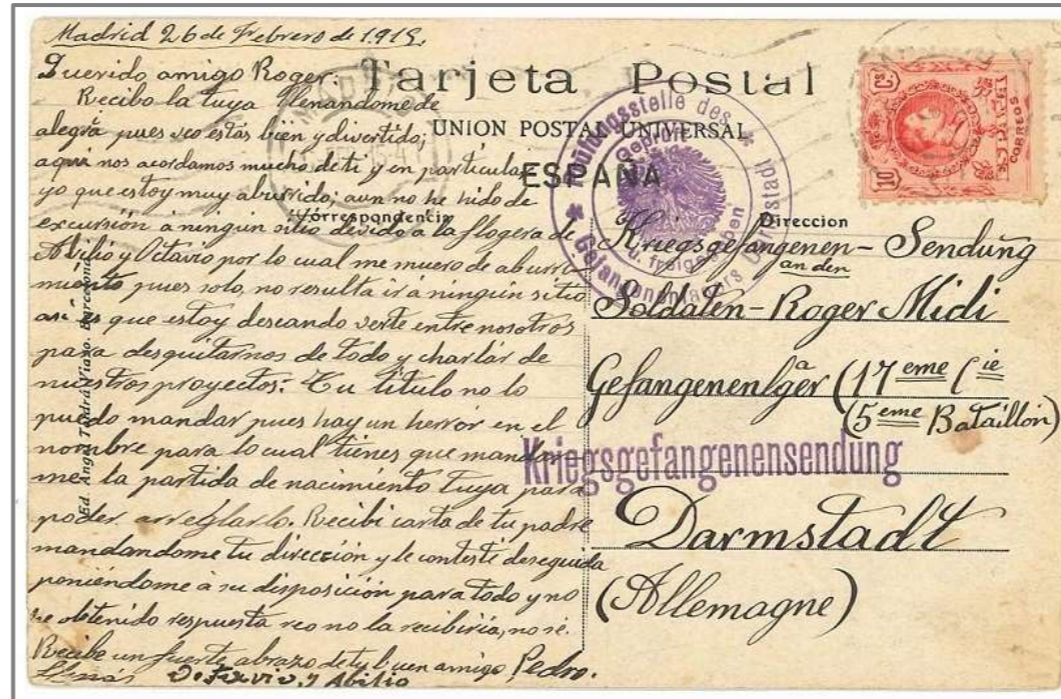 Madrid 26 de Febrero de 1919.
Querido amigo Roger:
Recibo la tuya llenandome de
alegra pues veo estás bien y divertido;
aqui nos acordamos mucho de ti y en particular
yo que estoy muy aburrido; aun no he hido de
excursión á ningún sitio divido á la flogera de
Abilio y Octavio por lo cual me muero de aburri-
miento pues solo, no resulta ir á ningún sitio
asi es que estoy deseando verte entre nosotros
para desquitarnos de todo y charlar de
nuestros proyectos: Tu título no lo
puedo mandar pues hay un herror en el
nombre para lo cual tienes que mandar-
me la partida de nacimiento tuya para
poder arreglarlo. Recibi carta de tu padre
mandandome tu dirección y le contesté deseguida
poniéndome á su disposición para todo y no
he obtenido respuesta reo no la recibiria, no sé.
Recibe un fuerte abrazo de tu buen amigo Pedro.
Octavio y Abilio
Tarjeta Postal
UNION POSTAL UNIVERSAL
ESPAÑA
Correspondencia
Direccion
Ed. Barcelona
MADRID
Gefangenenlagers Darmstadt
Geprüft
u. freigegeben
10 Cs
CORREOS
Kriegsgefangenen - Sendung
an den
Soldaten - Roger Midi
Gefangenenlger (17 eme Cie
(5 eme Bataillon)
Kriegsgefangenensendung
Darmstadt
(Allemagne)